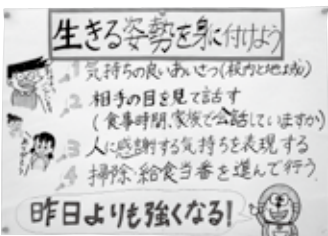 生きる姿勢を身に付けよう
1 気持ちの良いあいさつ(校内と地域)
2 相手の目を見て話す
(食事時間、家族で会話していますか)
3 人に感謝する気持ちを表現する
4 掃除・給食当番を進んで行う
昨日よりも強くなる!